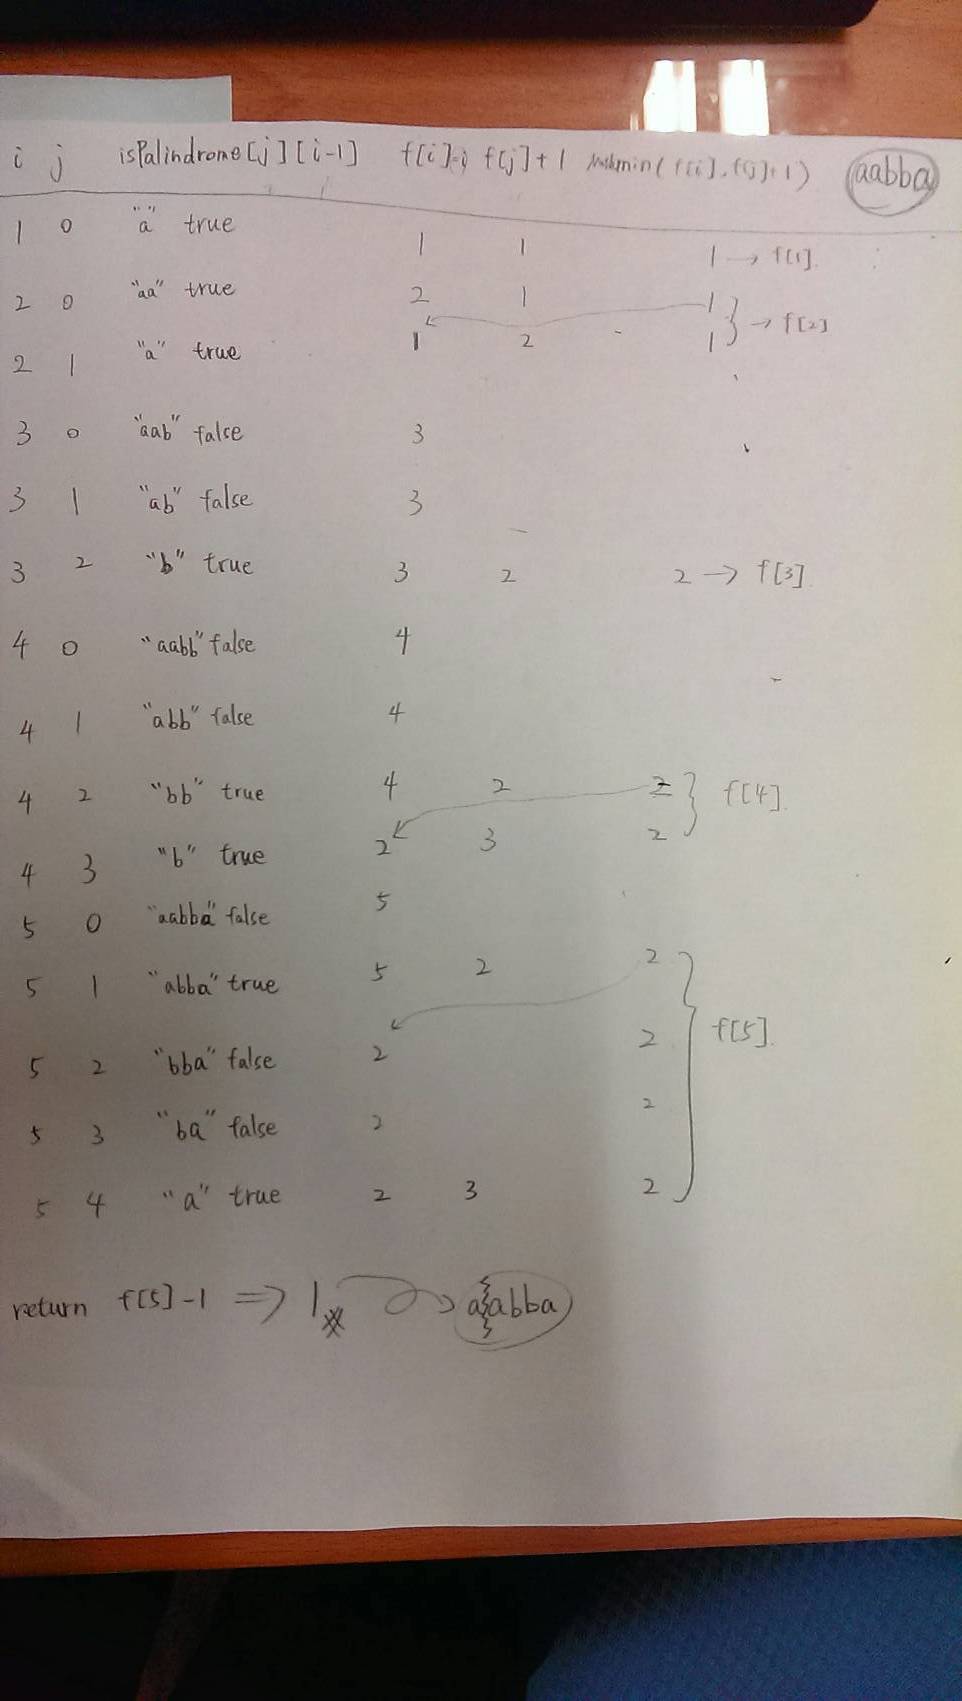 i j isPalindrome[j][i-1] f[i]=i f[j]+1 min(f[i], f[j]+1) aabba
1 0 "a" true 1 1 1 → f[1].
2 0 "aa" true 2 1 1
2 1 "a" true 1 2 1 } → f[2]
3 0 "aab" false 3
3 1 "ab" false 3
3 2 "b" true 3 2 2 → f[3]
4 0 "aabb" false 4
4 1 "abb" false 4
4 2 "bb" true 4 2 2 } f[4].
4 3 "b" true 2 3 2
5 0 "aabba" false 5
5 1 "abba" true 5 2 2
5 2 "bba" false 2 2 } f[5].
5 3 "ba" false 2 2
5 4 "a" true 2 3 2
return f[5]-1 ⇒ 1 a abba